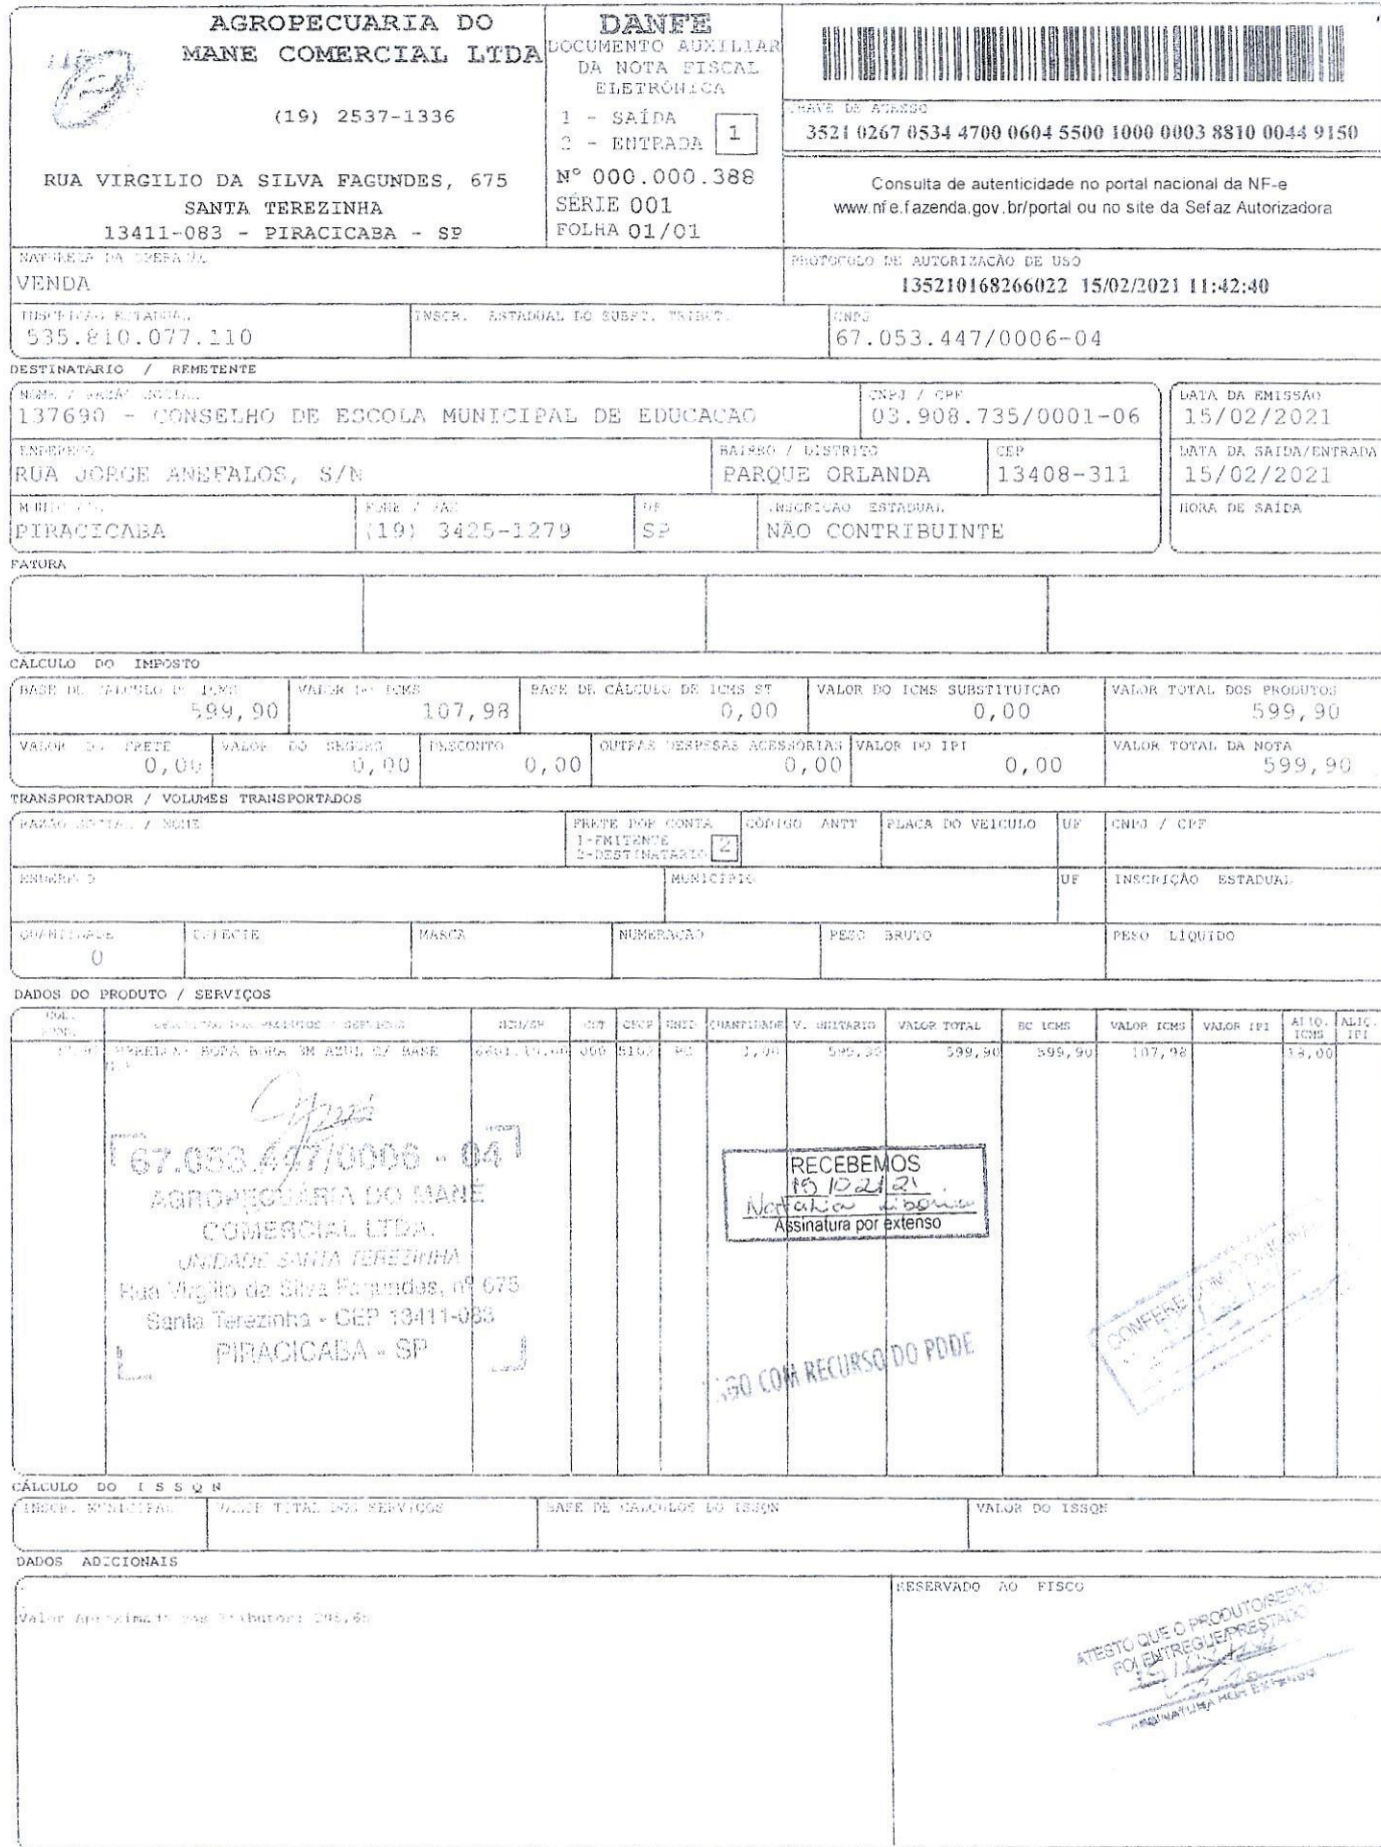 AGROPECUARIA DO
MANE COMERCIAL LTDA
(19) 2537-1336
RUA VIRGILIO DA SILVA FAGUNDES, 675
SANTA TEREZINHA
13411-083 - PIRACICABA - SP
DANFE
DOCUMENTO AUXILIAR
DA NOTA FISCAL
ELETRÔNICA
1 - SAÍDA
2 - ENTRADA
1
Nº 000.000.388
SÉRIE 001
FOLHA 01/01
CHAVE DE ACESSO
3521 0267 0534 4700 0604 5500 1000 0003 8810 0044 9150
Consulta de autenticidade no portal nacional da NF-e
www.nfe.fazenda.gov.br/portal ou no site da Sefaz Autorizadora
NATUREZA DA OPERAÇÃO
VENDA
PROTOCOLO DE AUTORIZACÃO DE USO
135210168266022 15/02/2021 11:42:40
INSCRIÇÃO ESTADUAL
535.810.077.110
INSCR. ESTADUAL DO SUBST. TRIBUT.
CNPJ
67.053.447/0006-04
DESTINATARIO / REMETENTE
NOME / RAZÃO SOCIAL
137690 - CONSELHO DE ESCOLA MUNICIPAL DE EDUCACAO
CNPJ / CPF
03.908.735/0001-06
DATA DA EMISSÃO
15/02/2021
ENDEREÇO
RUA JORGE ANEFALOS, S/N
BAIRRO / DISTRITO
PARQUE ORLANDA
CEP
13408-311
DATA DA SAIDA/ENTRADA
15/02/2021
MUNICIPIO
PIRACICABA
FONE / FAX
(19) 3425-1279
UF
SP
INSCRICAO ESTADUAL
NÃO CONTRIBUINTE
HORA DE SAÍDA
FATURA
CÁLCULO DO IMPOSTO
BASE DE CALCULO DE ICMS
599,90
VALOR DO ICMS
107,98
BASE DE CÁLCULO DE ICMS ST
0,00
VALOR DO ICMS SUBSTITUICAO
0,00
VALOR TOTAL DOS PRODUTOS
599,90
VALOR DO FRETE
0,00
VALOR DO SEGURO
0,00
DESCONTO
0,00
OUTRAS DESPESAS ACESSÓRIAS
0,00
VALOR DO IPI
0,00
VALOR TOTAL DA NOTA
599,90
TRANSPORTADOR / VOLUMES TRANSPORTADOS
RAZÃO SOCIAL / NOME
FRETE POR CONTA
1-EMITENTE
2-DESTINATARIO
2
CÓDIGO ANTT
PLACA DO VEICULO
UF
CNPJ / CPF
ENDEREÇO
MUNICIPIO
UF
INSCRIÇÃO ESTADUAL
QUANTIDADE
0
ESPECIE
MARCA
NUMERACÃO
PESO BRUTO
PESO LÍQUIDO
DADOS DO PRODUTO / SERVIÇOS
NCM/SH CST CFOP UNID QUANTIDADE V. UNITARIO VALOR TOTAL BC ICMS VALOR ICMS VALOR IPI ALIQ. ICMS ALIQ. IPI
BORA BORA 3M AZUL C/ BASE 000 5102 PC 1,00 599,90 599,90 599,90 107,98 18,00
67.053.447/0006 - 04
AGROPECUÁRIA DO MANÉ
COMERCIAL LTDA.
UNIDADE SANTA TEREZINHA
Rua Virgílio da Silva Fagundes, nº 675
Santa Terezinha - CEP 13411-083
PIRACICABA - SP
RECEBEMOS
15/02/21
Assinatura por extenso
COM RECURSO DO PDDE
CONFERE COM O
CÁLCULO DO I S S Q N
INSCR. MUNICIPAL
VALOR TOTAL DOS SERVIÇOS
BASE DE CALCULOS DO ISSQN
VALOR DO ISSQN
DADOS ADICIONAIS
Valor Aproximado dos Tributos:
RESERVADO AO FISCO
ATESTO QUE O PRODUTO/SERVIÇO
FOI ENTREGUE/PRESTADO
ASSINATURA POR EXTENSO